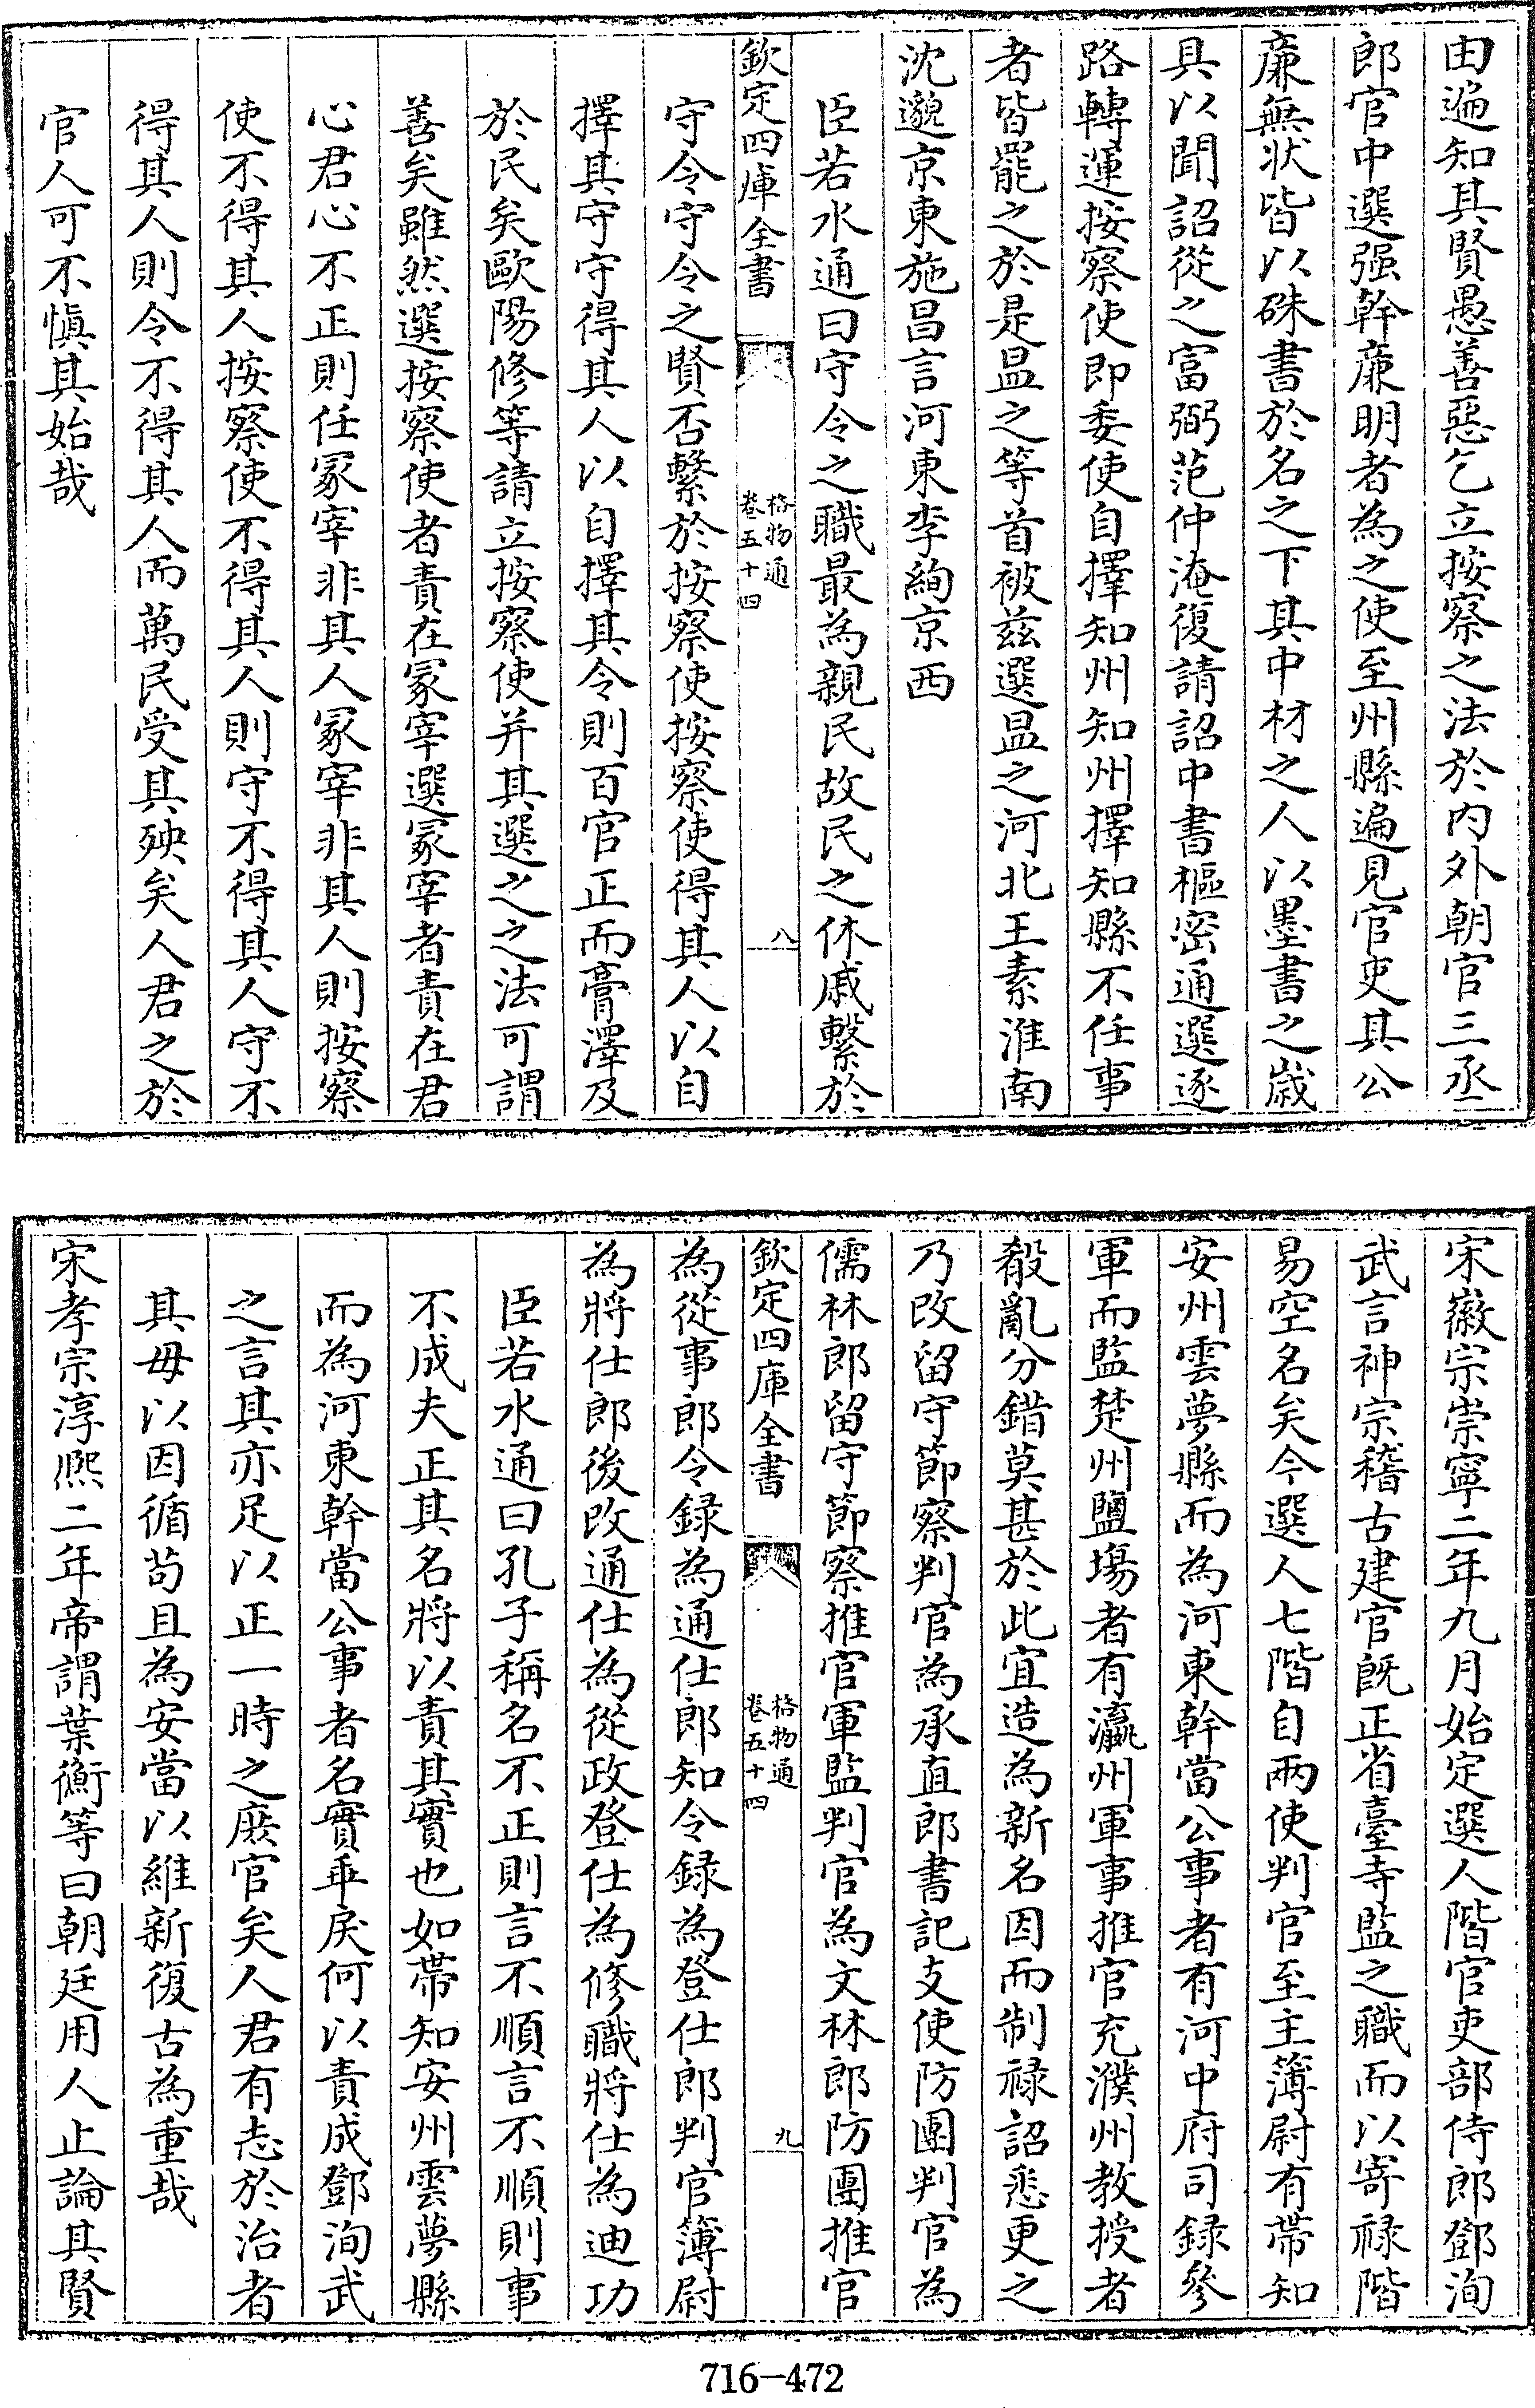 由遍知其賢愚善惡乞立按察之法於内外朝官三丞
郎官中選强幹廉明者為之使至州縣遍見官吏其公
廉無状皆以硃書於名之下其中材之人以墨書之歳
具以聞詔從之富弼范仲淹復請詔中書樞密通選逐
路轉運按察使即委使自擇知州知州擇知縣不任事
者皆罷之於是昷之等首被兹選昷之河北王素淮南
沈邈京東施昌言河東李絢京西
臣若水通曰守令之職最為親民故民之休戚繫於
欽定四庫全書
格物通
卷五十四
八
守令守令之賢否繫於按察使按察使得其人以自
擇其守守得其人以自擇其令則百官正而膏澤及
於民矣歐陽修等請立按察使并其選之之法可謂
善矣雖然選按察使者責在冢宰選冢宰者責在君
心君心不正則任冢宰非其人冢宰非其人則按察
使不得其人按察使不得其人則守不得其人守不
得其人則令不得其人而萬民受其殃矣人君之於
官人可不慎其始哉
宋徽宗崇寧二年九月始定選人階官吏部侍郎鄧洵
武言神宗稽古建官既正省臺寺監之職而以寄禄階
易空名矣今選人七階自兩使判官至主簿尉有帶知
安州雲夢縣而為河東幹當公事者有河中府司録參
軍而監楚州鹽塲者有瀛州軍事推官充濮州教授者
殽亂分錯莫甚於此宜造為新名因而制禄詔悉更之
乃改留守節察判官為承直郎書記支使防團判官為
儒林郎留守節察推官軍監判官為文林郎防團推官
欽定四庫全書
格物通
卷五十四
九
為從事郎令録為通仕郎知令録為登仕郎判官簿尉
為將仕郎後改通仕為從政登仕為修職將仕為迪功
臣若水通曰孔子稱名不正則言不順言不順則事
不成夫正其名將以責其實也如帶知安州雲夢縣
而為河東幹當公事者名實乖戾何以責成鄧洵武
之言其亦足以正一時之庶官矣人君有志於治者
其毋以因循苟且為安當以維新復古為重哉
宋孝宗淳熙二年帝謂葉衡等曰朝廷用人止論其賢
716-472